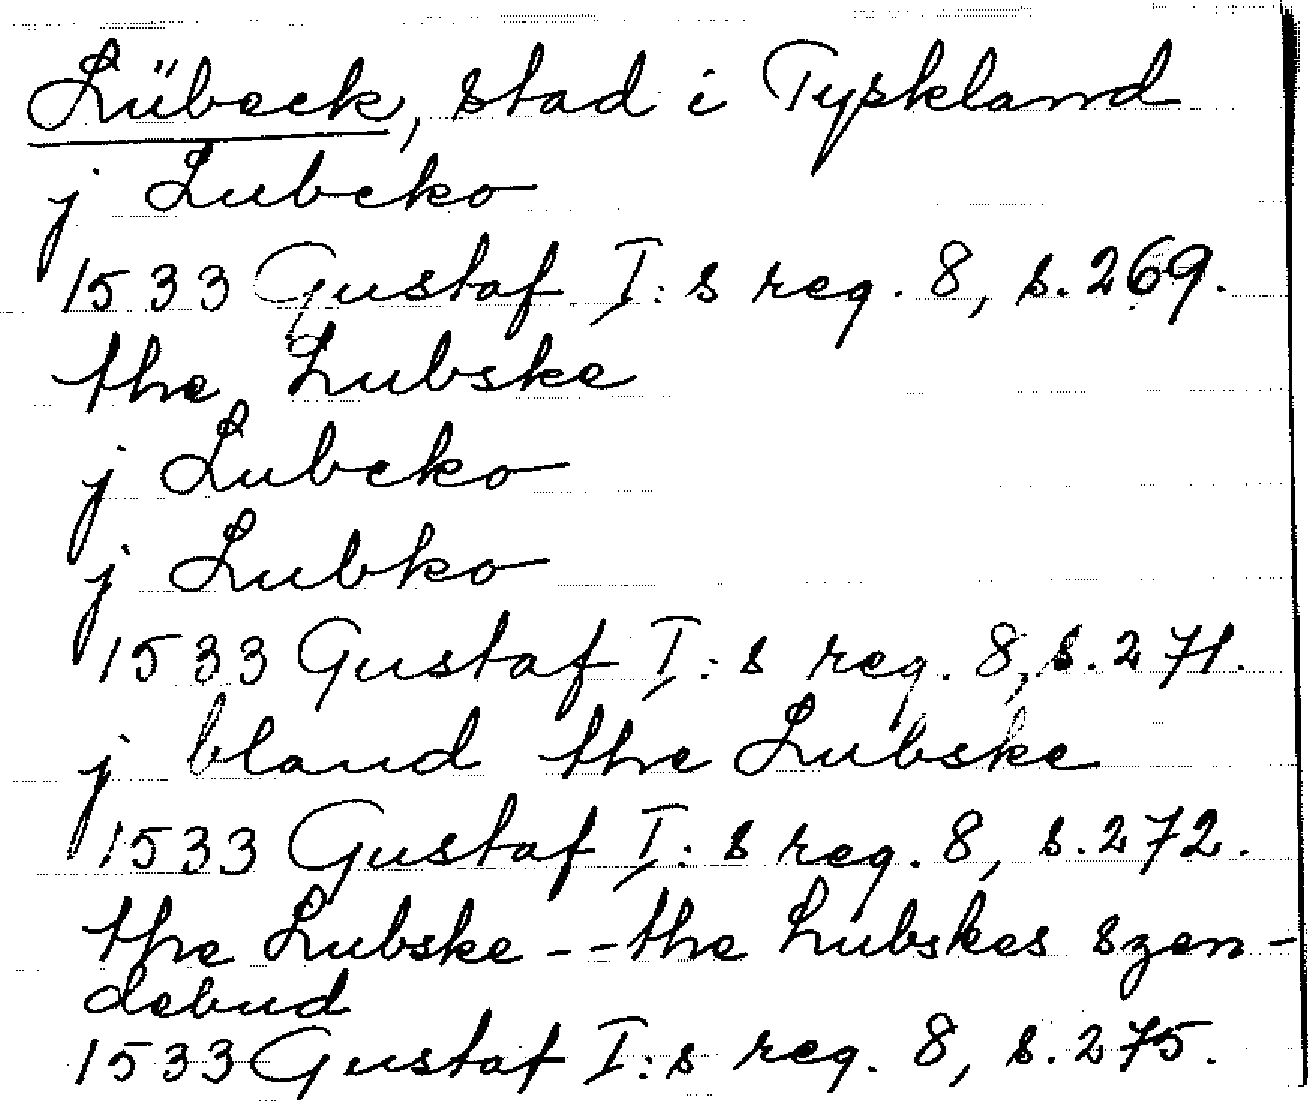 Lübeck, stad i Tyskland
j Lubcko
1533 Gustaf I:s reg. 8, s. 269.
the Lubske
j Lubcko
j Lubko
1533 Gustaf I:s reg. 8, s. 271.
j bland the Lubske
1533 Gustaf I:s reg. 8, s. 272.
the Lubske - - the Lubskes szen-
debud
1533 Gustaf I:s reg. 8, s. 275.